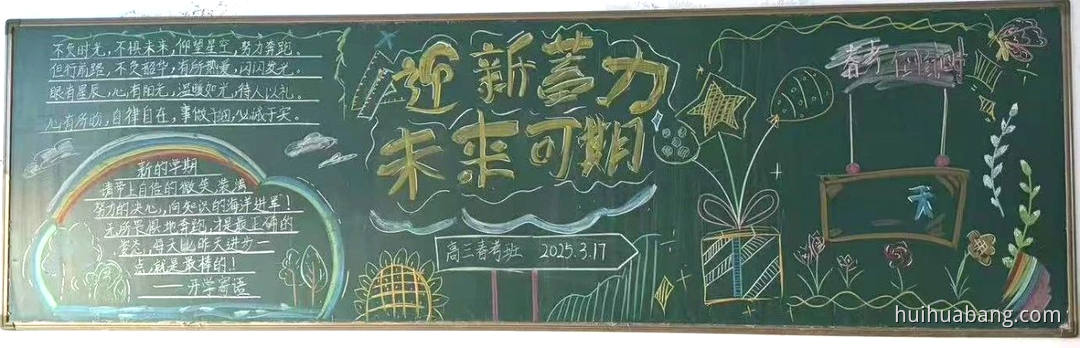 不负时光,不惧未来,仰望星空,努力奔跑。
但行前路,不负韶华,有所热爱,闪闪发光。
眼有星辰,心有阳光,温暖如光,待人以礼。
心有所畅,自律自在,事做于细,必诚于天。
迎新蓄力
未来可期
新的学期
请带上自信的微笑装满
努力的决心,向知识的海洋进军!
无所畏惧地奔跑,才是最正确的
姿态,每天比昨天进步一
点,就是最棒的!!
——开学寄语
高三春考班 2025.3.17
春考倒计时
天
huihuabang.com